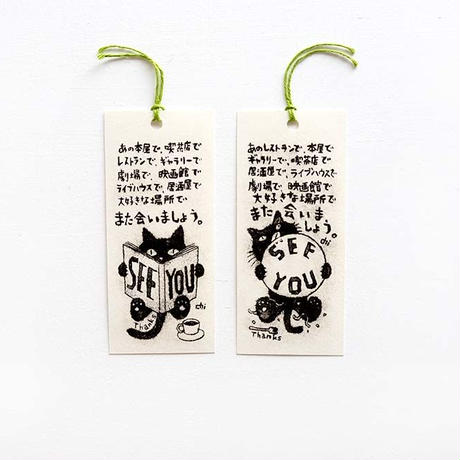 あの本屋で、喫茶店で
レストランで、ギャラリーで
劇場で、映画館で
ライブハウスで、居酒屋で
大好きな場所で
また会いましょう。
SEE YOU
chi
Thanks
あのレストランで、本屋で
ギャラリーで、喫茶店で
居酒屋で、ライブハウスで
劇場で、映画館で
大好きな場所で
また会いま
しょう。
SEE
YOU
chi
Thanks